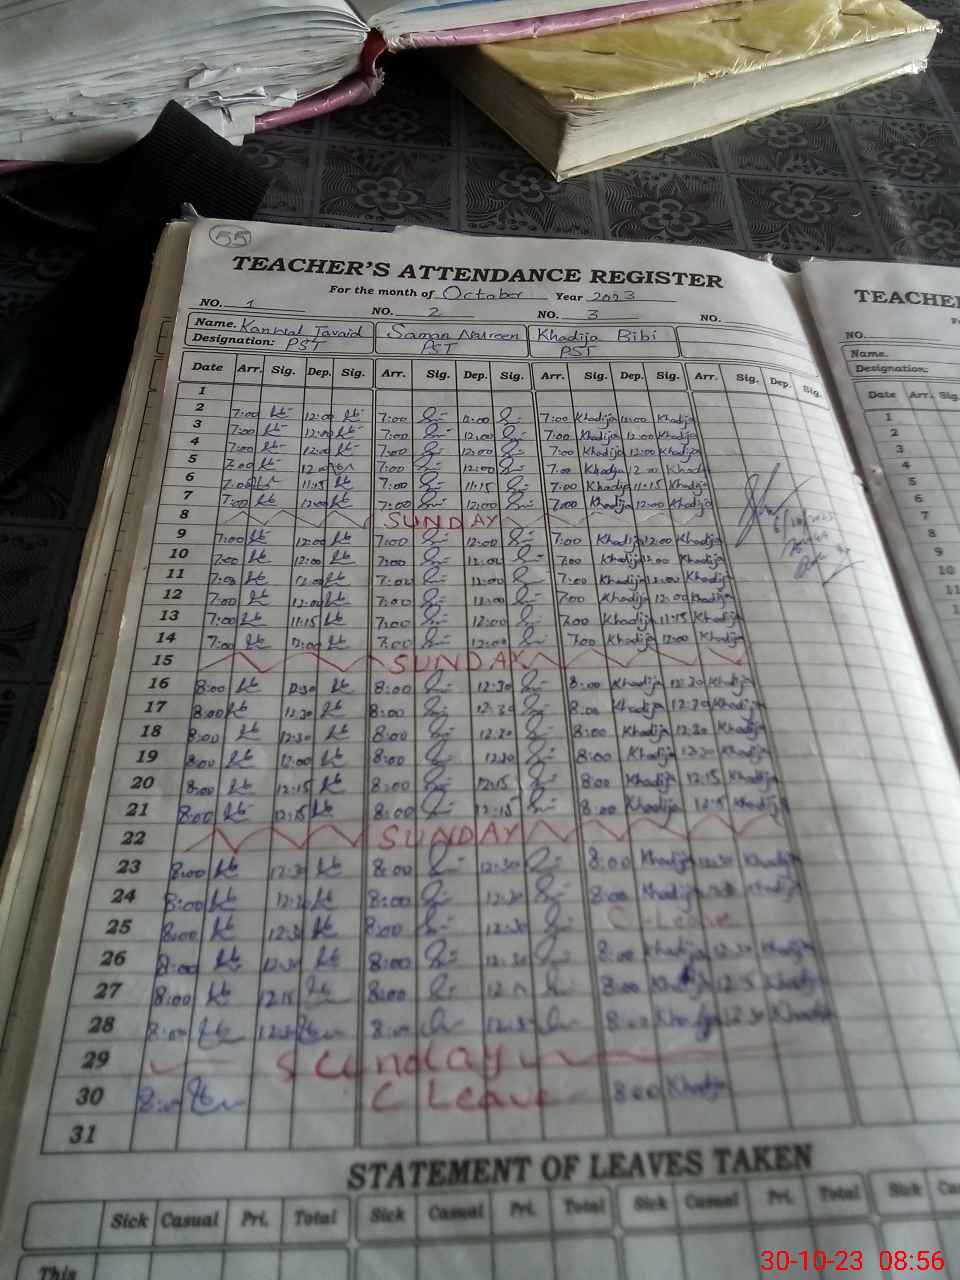 55
TEACHER'S ATTENDANCE REGISTER
For the month of October Year 2023
NO. 1 NO. 2 NO. 3 NO.
Name. Kanwal Javaid Saman Nureen Khadija Bibi
Designation: PST PST PST
Date Arr. Sig. Dep. Sig. Arr. Sig. Dep. Sig. Arr. Sig. Dep. Sig. Arr. Sig. Dep. Sig.
1
2 7:00 12:00 7:00 12:00 7:00 Khadija 12:00 Khadija
3 7:00 12:00 7:00 12:00 7:00 Khadija 12:00 Khadija
4 7:00 12:00 7:00 12:00 7:00 Khadija 12:00 Khadija
5 7:00 12:00 7:00 12:00 7:00 Khadija 12:00 Khadija
6 7:00 11:15 7:00 11:15 7:00 Khadija 11:15 Khadija
7 7:00 12:00 7:00 12:00 7:00 Khadija 12:00 Khadija
8 SUNDAY
9 7:00 12:00 7:00 12:00 7:00 Khadija 12:00 Khadija
10 7:00 12:00 7:00 12:00 7:00 Khadija 12:00 Khadija
11 7:00 12:00 7:00 12:00 7:00 Khadija 12:00 Khadija
12 7:00 12:00 7:00 12:00 7:00 Khadija 12:00 Khadija
13 7:00 11:15 7:00 12:00 7:00 Khadija 11:15 Khadija
14 7:00 12:00 7:00 12:00 7:00 Khadija 12:00 Khadija
15 SUNDAY
16 8:00 12:30 8:00 12:30 8:00 Khadija 12:30 Khadija
17 8:00 12:30 8:00 12:30 8:00 Khadija 12:30 Khadija
18 8:00 12:30 8:00 12:30 8:00 Khadija 12:30 Khadija
19 8:00 12:00 8:00 12:30 8:00 Khadija 12:30 Khadija
20 8:00 12:15 8:00 12:15 8:00 Khadija 12:15 Khadija
21 8:00 12:15 8:00 12:15 8:00 Khadija Khadija
22 SUNDAY
23 8:00 12:30 8:00 12:30 8:00 Khadija 12:30 Khadija
24 8:00 12:30 8:00 12:30 8:00 Khadija Khadija
25 8:00 12:30 8:00 12:30 C-Leave
26 8:00 12:30 8:00 12:30 8:00 Khadija 12:30 Khadija
27 8:00 12:15 8:00 8:00 Khadija Khadija
28 8:00 12:30 8:00 12:30 8:00 Khadija 12:30 Khadija
29 Sunday
30 8:00 C Leave 8:00 Khadija
31
STATEMENT OF LEAVES TAKEN
Sick Casual Pri. Total Sick Casual Pri. Total Sick Casual Pri. Total Sick
This
TEACHER
NO.
Name.
Designation:
Date Arr. Sig.
1
2
3
4
5
6
7
8
9
10
11
30-10-23 08:56